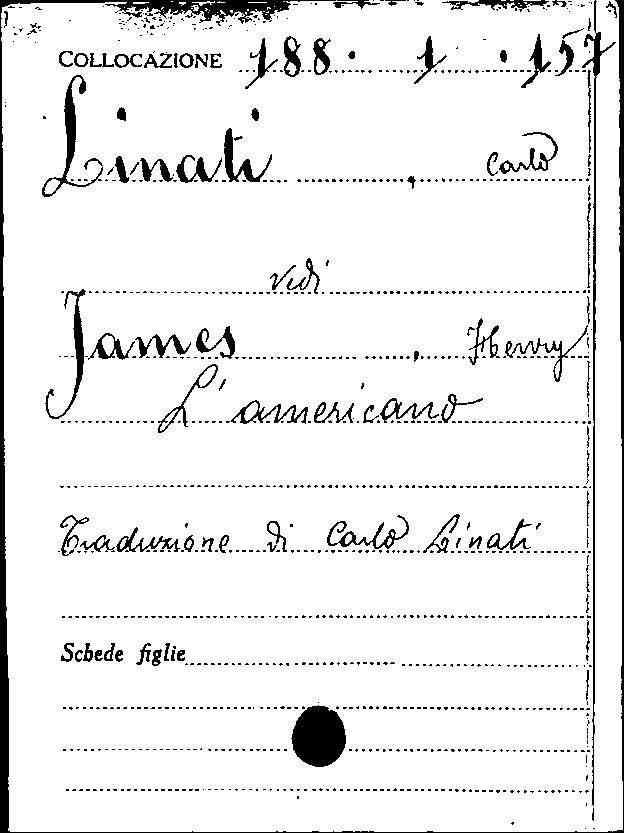 COLLOCAZIONE 188 · 1 · 157
Linati, Carlo
vedi
James, Henry
L'americano
Traduzione di Carlo Linati
Schede figlie